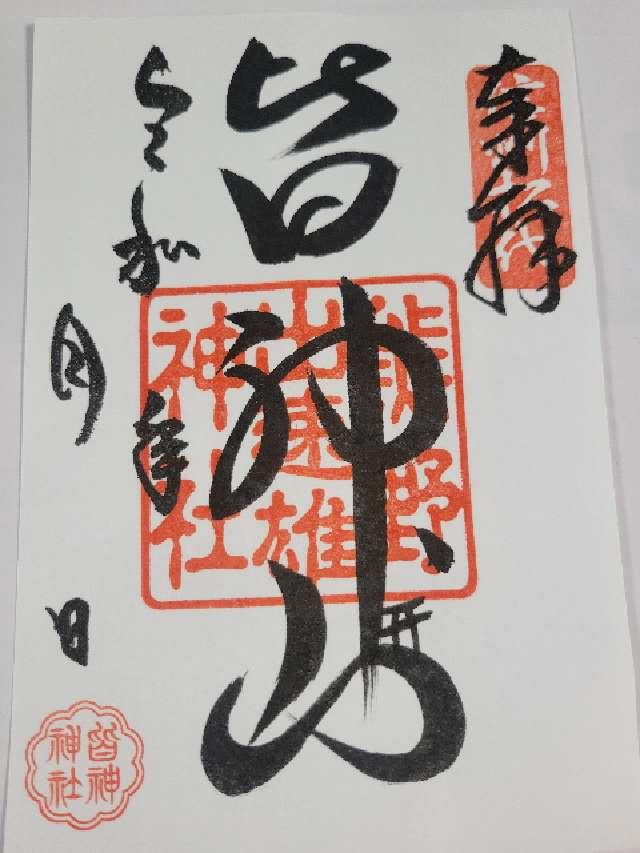 奉拝
信州松代
皆神山
熊野
出速雄
神社
令和　年
月　日
皆神
神社